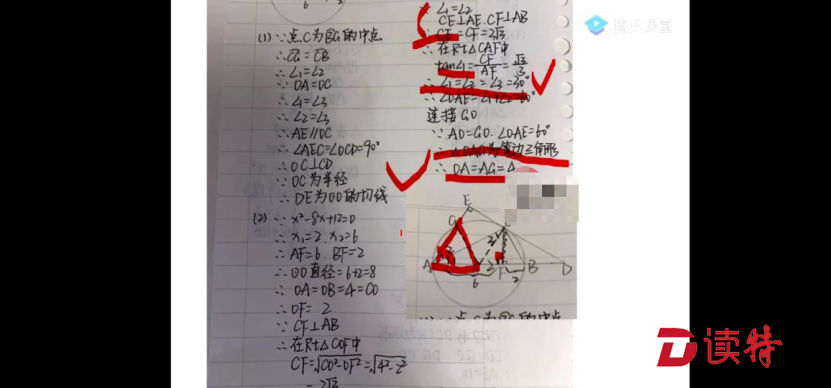 6
(1) ∵点C为BG的中点
∴CG=CB
∴∠1=∠2
∵OA=OC
∴∠1=∠3
∴∠2=∠3
∴AE∥OC
∴∠AEC=∠OCD=90°
∴OC⊥CD
∵OC为半径
∴DE为⊙O的切线
(2) ∵x²-8x+12=0
∴x₁=2 x₂=6
∴AF=6 BF=2
∴⊙O直径=6+2=8
∴OA=OB=4=CO
∴OF=2
∵CF⊥AB
∴在Rt△COF中
CF=√CO²-OF²=√4²-2²
=2√3
∵∠1=∠2
CE⊥AE.CF⊥AB
∴CE=CF=2√3
∴在Rt△CAF中
tan∠1=CF/AF=√3/3
∴∠1=∠2=∠3=30°
∴∠OAE=∠1+∠2=60°
连接GO
∵AO=GO.∠OAE=60°
∴△OAG为等边三角形
∴OA=AG=4
E
G
A
F
B
D
2
6
腾讯课堂
读特